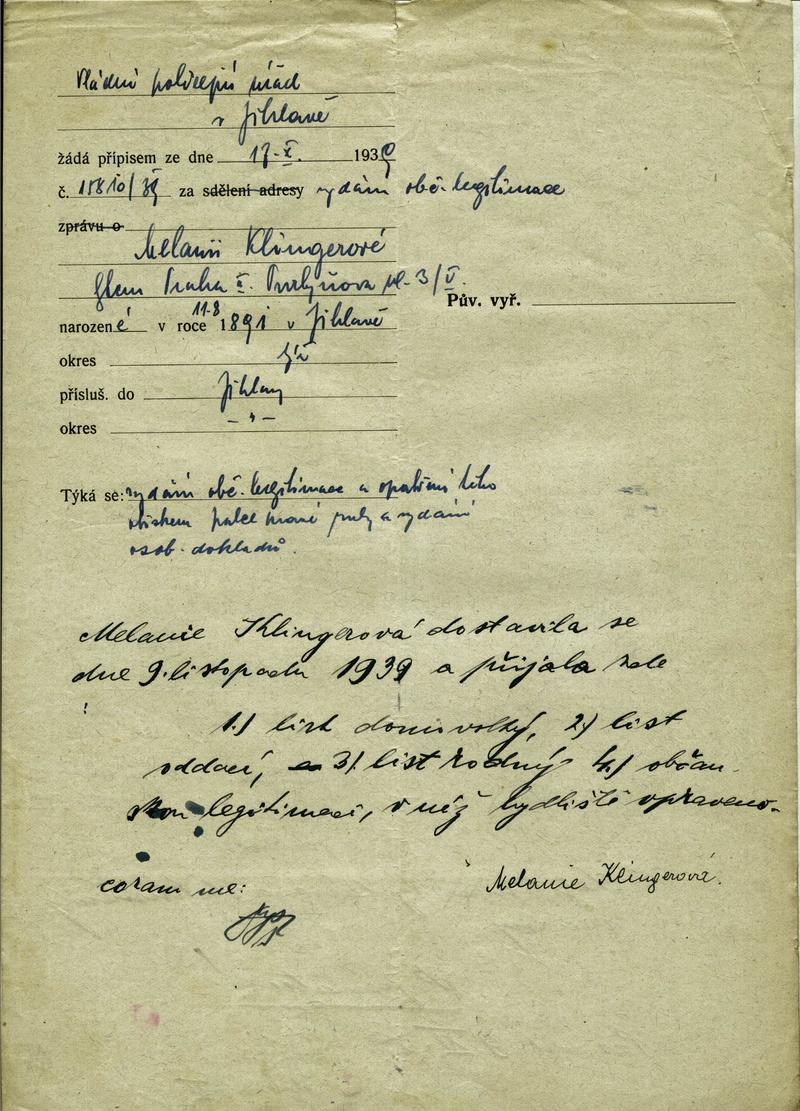 Vládní policejní úřad
v Jihlavě
žádá přípisem ze dne 17.X. 1939
č. 15810/39 za sdělení adresy vydání obč. legitimace
zprávu o
Melanii Klingerové
Praha II. č. 3/V.
Pův. vyř.
11.8
narozené v roce 1891 v Jihlavě
okres
přísluš. do Jihlavy
okres - " -
Týká se: vydání obč. legitimace a opatření této
otiskem palce pravé ruky a vydání
osob. dokladů.
Melanie Klingerová dostavila se
dne 9. listopadu 1939 a přijala zde
1.) list domovský, 2.) list
oddací, a 3). list rodný 4.) občan-
skou legitimaci, v níž bydliště opraveno.
coram me:
Melanie Klingerová.